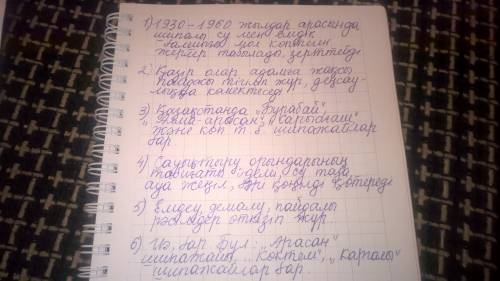 1) 1930-1960 жылдар арасында
шипалы су мен емдік
балшығы мол көптеген
жерлер табылады, зерттелді
2) Қазір олар адамға жақсы
пайдасы тигізіп жүр, денсау-
лыққа көмектеседі
3) Қазақстанда "Бурабай",
"Алма-арасан", "Сарыағаш"
және көп т б шипажайлар
бар.
4) Сауықтыру орындарының
табиғаты әдемі, су таза
ауа жеңіл, көңілді көтереді
5) Емдеу, демалу, пайдалы
рәсімдер өткізіп жүр
6) Иә, бар Бұл: "Арасан"
шипажайы, "Көктем", "Қапалы"
шипажайлар бар.